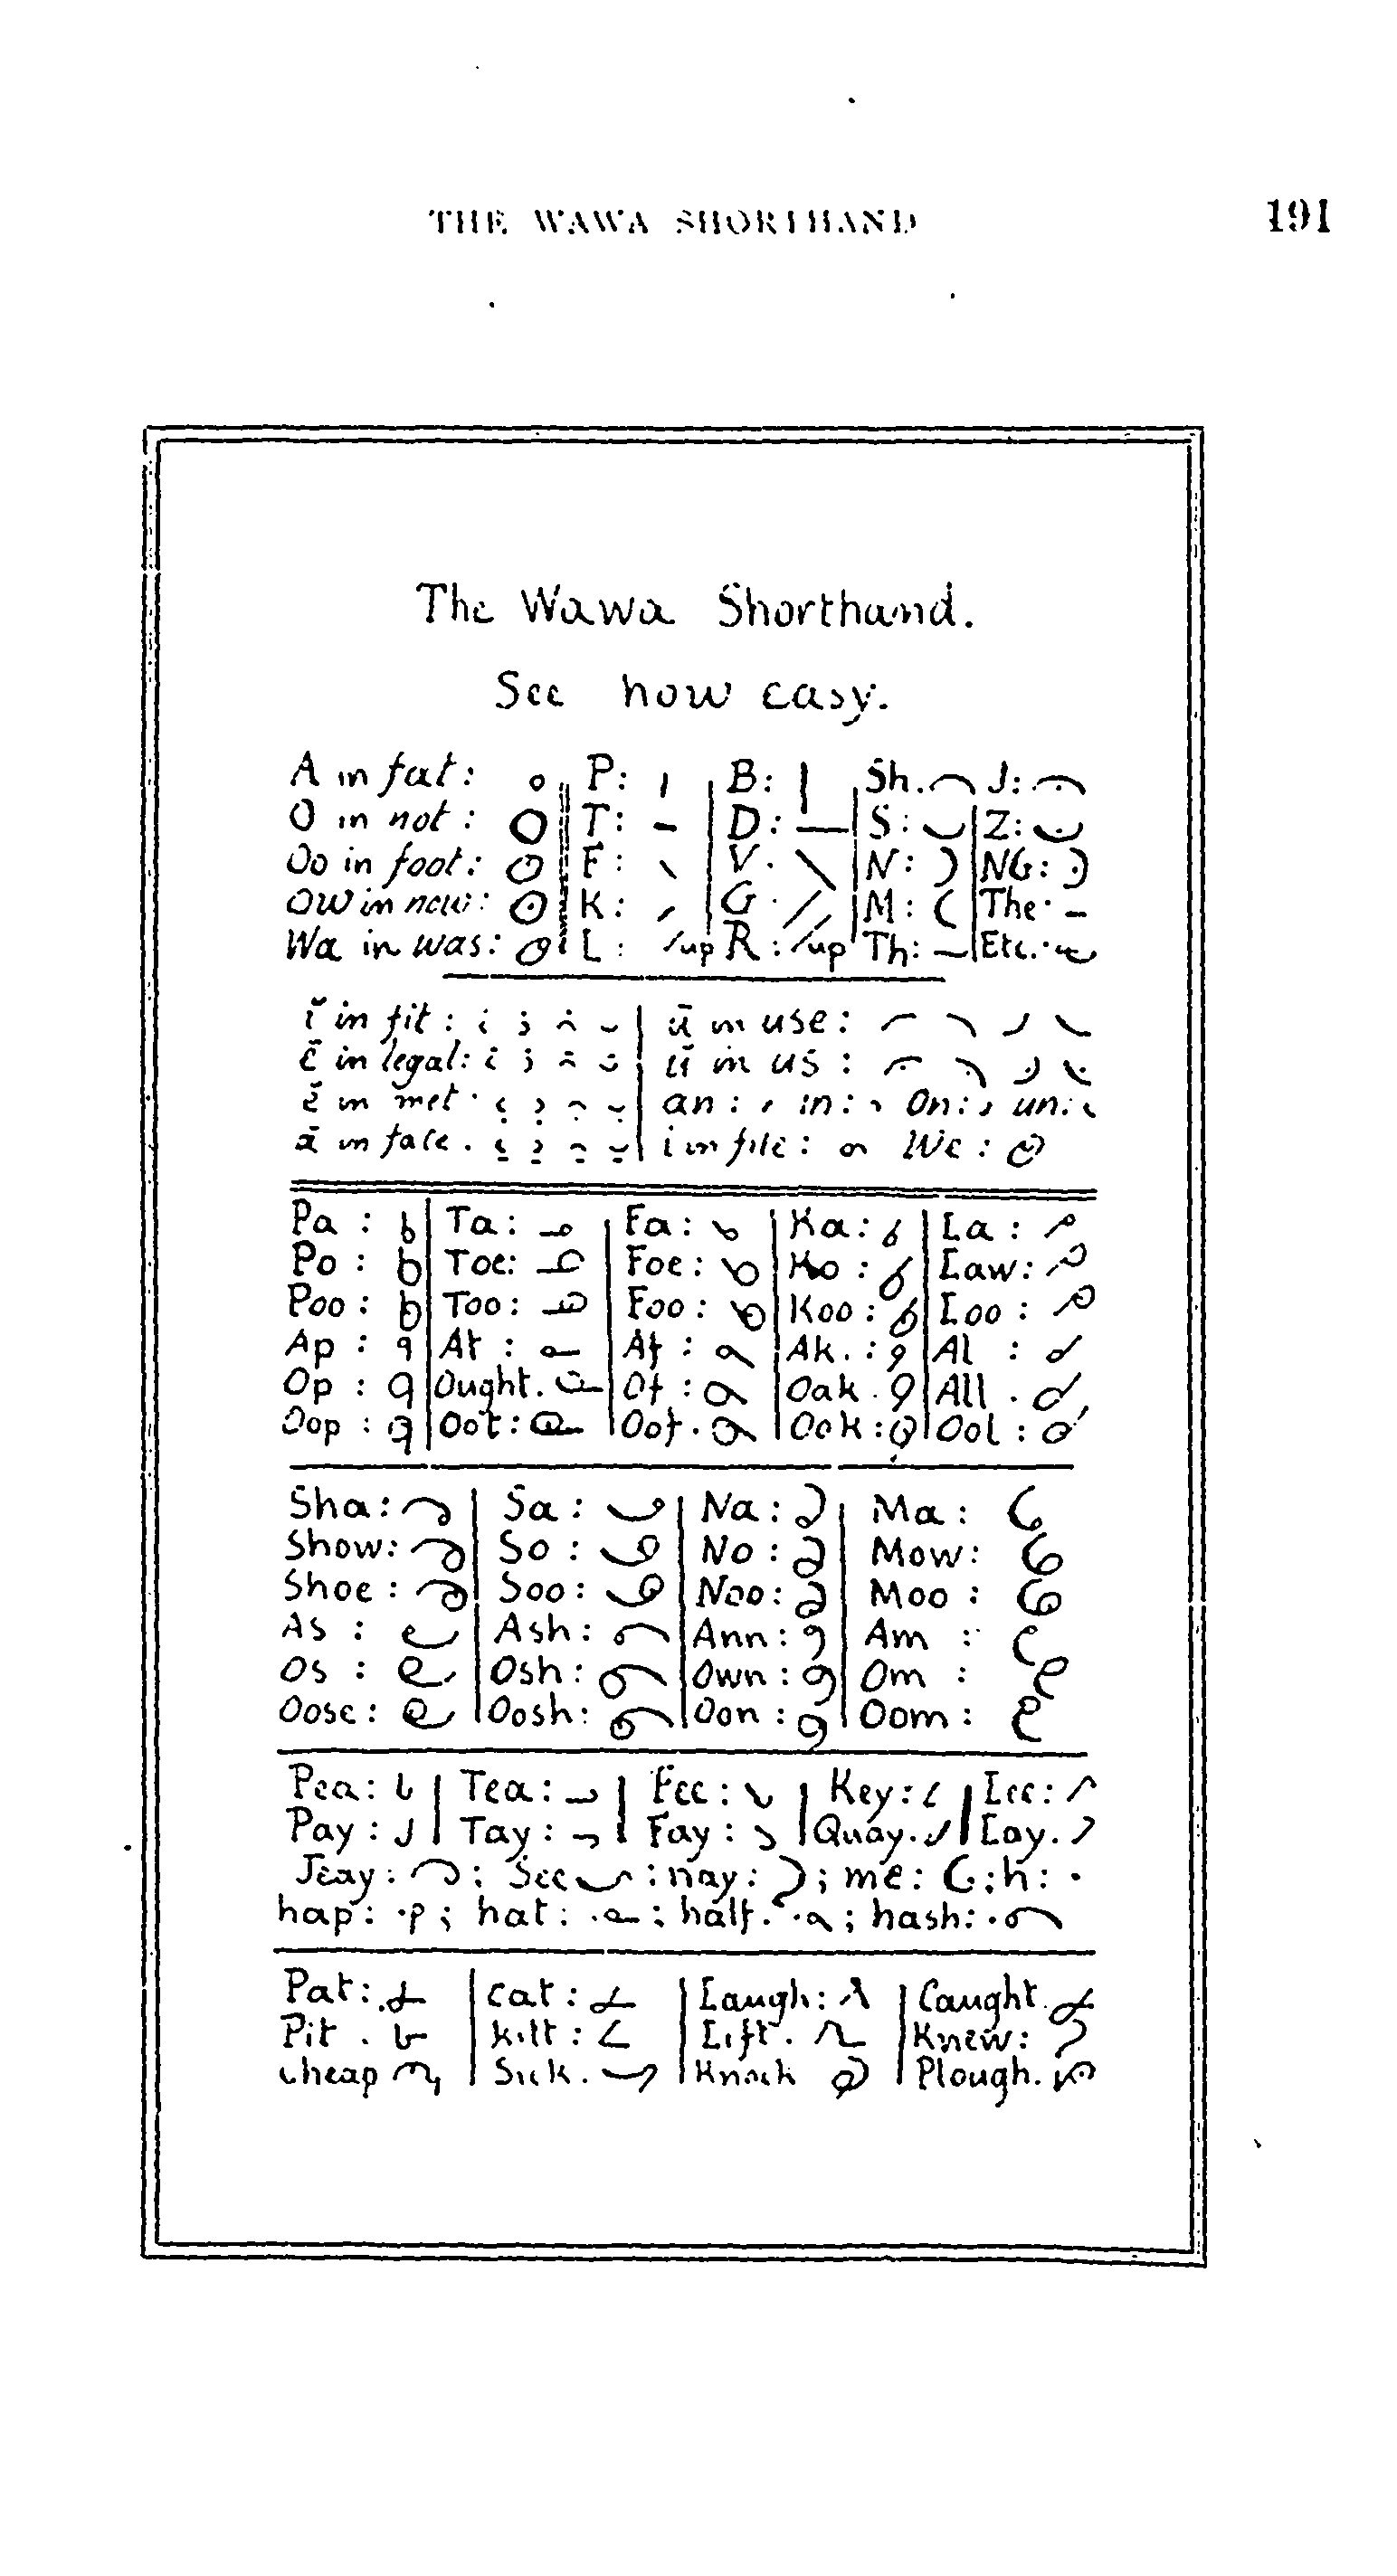 THE WAWA SHORTHAND 191
The Wawa Shorthand.
See how easy.
A in fat: P: B: Sh. J:
O in not: T: D: S: Z:
Oo in foot: F: V. N: NG:
OW in now: K: G. M: The.
Wa in was: L: up R: up Th: Etc.
ĭ in fit: ū in use:
ē in legal: ŭ in us:
ĕ in met. an: in: On: un:
ā in fate. i in file: We:
Pa: Ta: Fa: Ka: La:
Po: Toe: Foe: Ko: Law:
Poo: Too: Foo: Koo: Loo:
Ap: At: Af: Ak.: Al:
Op: Ought. Of: Oak. All.
Oop: Oot: Oof. Ook: Ool:
Sha: Sa: Na: Ma:
Show: So: No: Mow:
Shoe: Soo: Noo: Moo:
As: Ash: Ann: Am:
Os: Osh: Own: Om:
Oose: Oosh: Oon: Oom:
Pea: Tea: Fee: Key: Lee:
Pay: Tay: Fay: Quay. Lay.
Jeay: ; See : nay: ; me: ; h:
hap: ; hat: ; half. ; hash:
Pat: cat: Laugh: Caught.
Pit. kitt: Lift. Knew:
cheap Sick. Knock Plough.